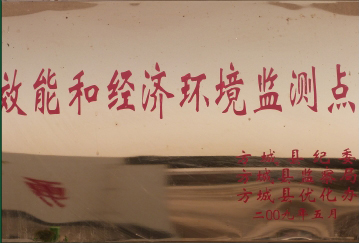 效能和经济环境监测点
方城县纪委
方城县监察局
方城县优化办
二00九年五月